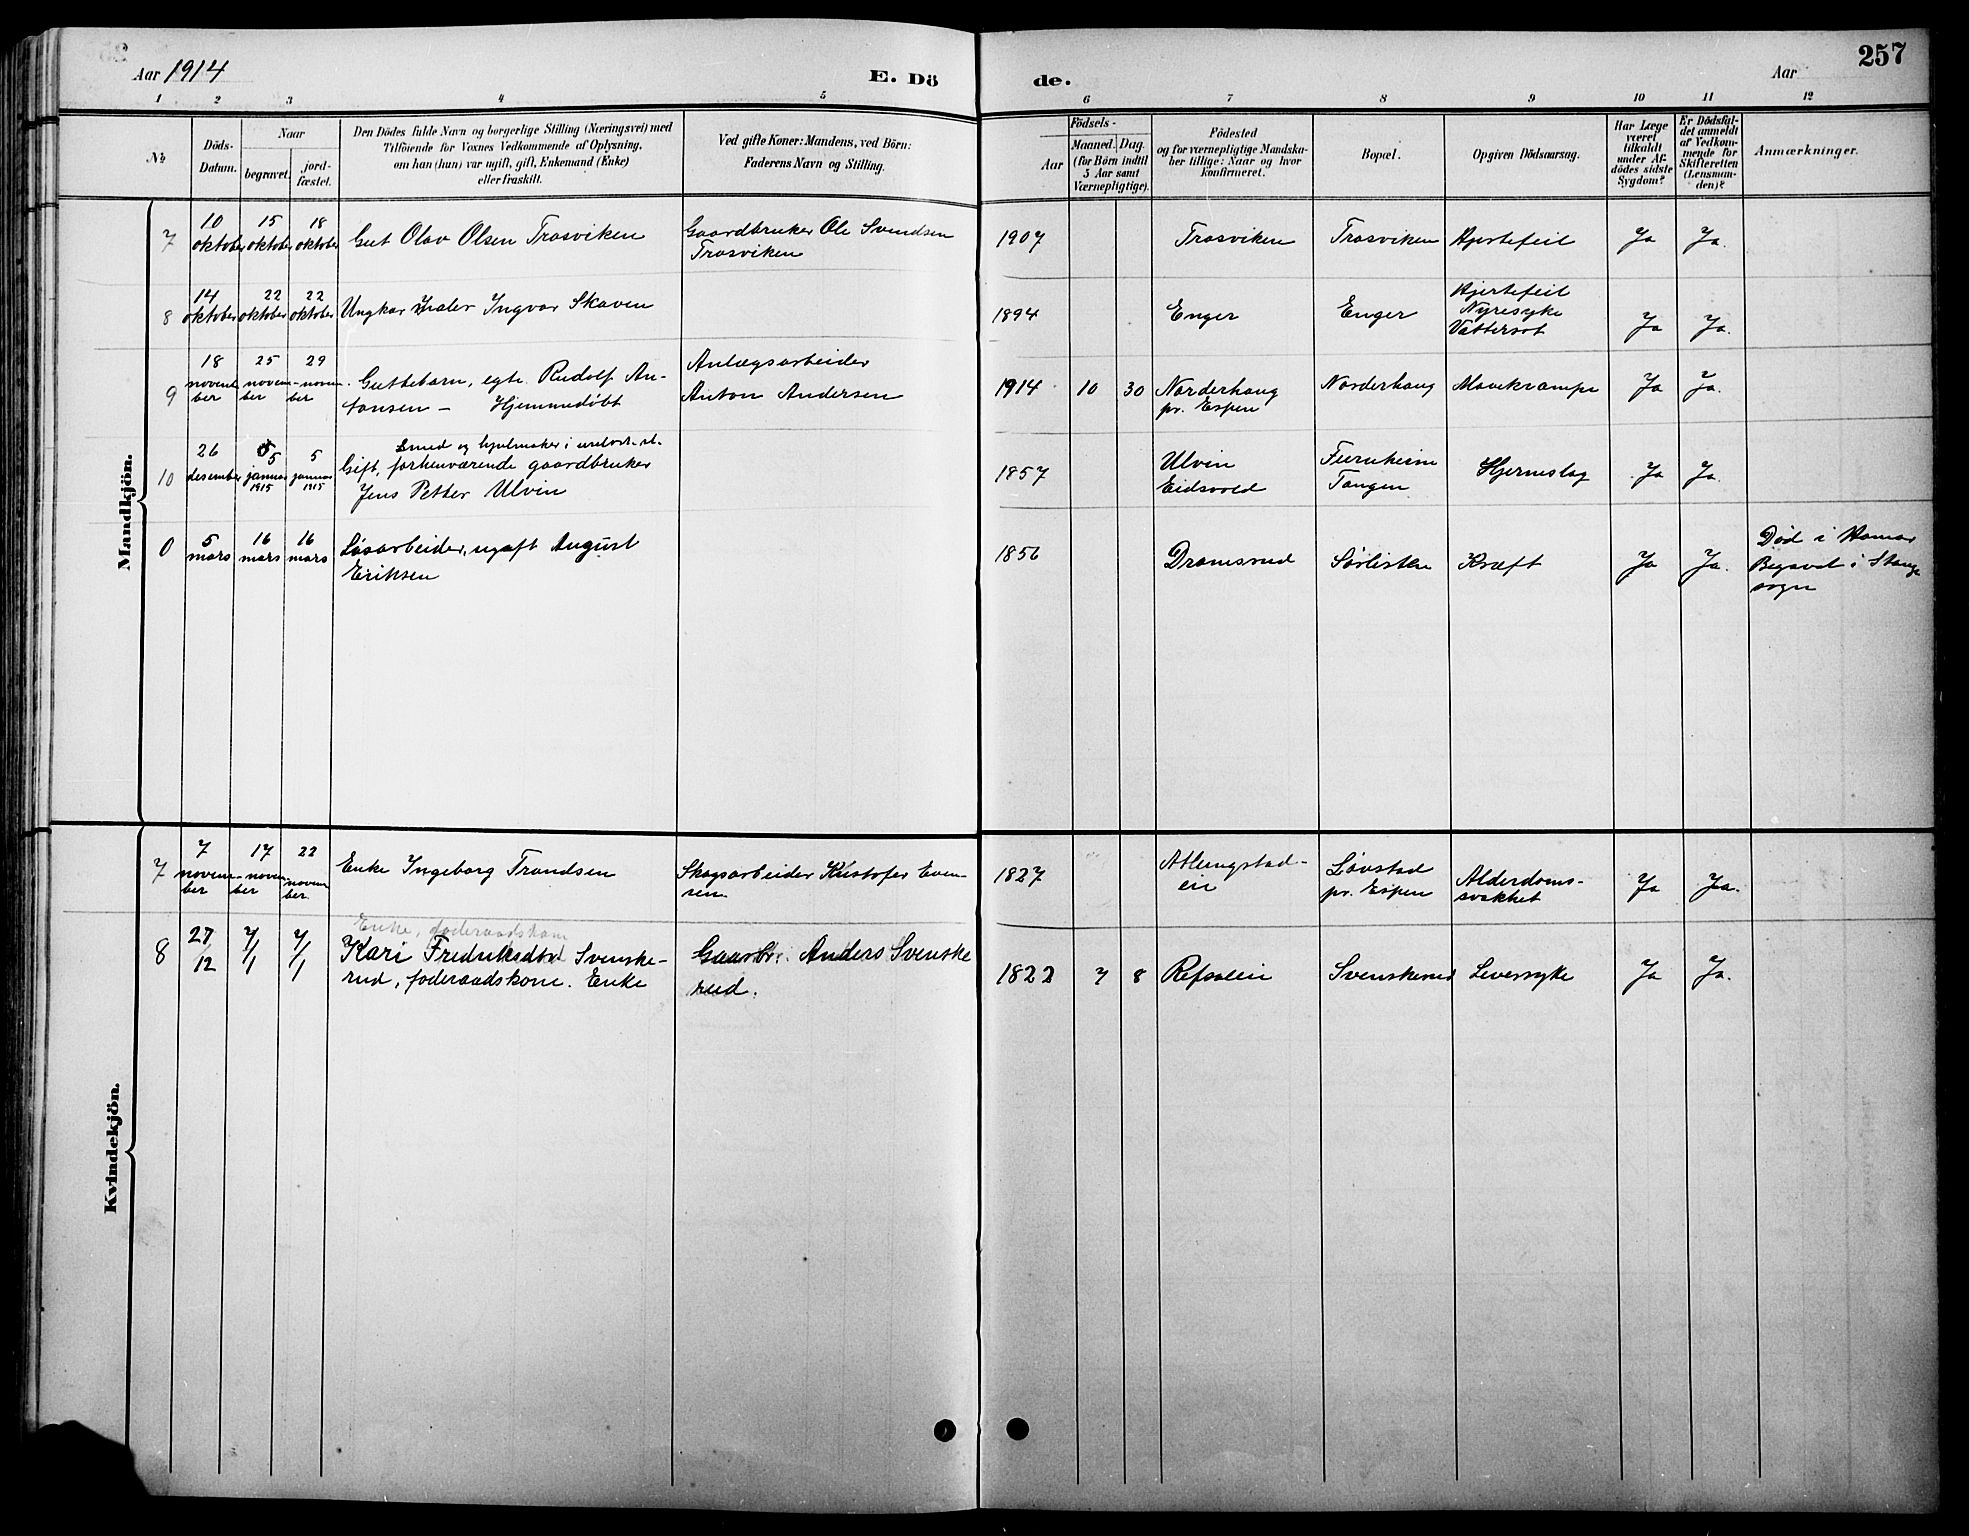 Aar 1914
E. Dö
de.
Aar
257
1 2 3 4 5 6 7 8 9 10 11 12
№
Döds-
Datum.
Naar
begravet.
jord-
fæstet.
Den Dödes fulde Navn og borgerlige Stilling (Næringsvei) med
Tilföiende for Voxnes Vedkommende af Oplysning,
om han (hun) var ugift, gift, Enkemand (Enke)
eller fraskilt.
Ved gifte Koner: Mandens, ved Börn:
Faderens Navn og Stilling.
Födsels-
Aar
Maaned. Dag.
(for Börn indtil
5 Aar samt
Værnepligtige).
Födested
og for værnepligtige Mandska-
ber tillige: Naar og hvor
konfirmeret.
Bopæl.
Opgiven Dödsaarsag.
Har Læge
været
tilkaldt
under Af-
dödes sidste
Sygdom?
Er Dödsfal-
det anmeldt
af Vedkom-
mende for
Skifteretten
(Lensman-
den)?
Anmærkninger.
Mandkjön.
7
10
oktober
15
oktober
18
oktober
Gut Olav Olsen Trosviken
Gaardbruker Ole Svendsen
Trosviken
1907
Trosviken
Trosviken
Hjertefeil
Ja
Ja.
8
14
oktober
22
oktober
22
oktober
Ungkar Ingvar Skaven
1894
Enger
Enger
Hjertefeil
Nyresyke
Vattersot
Ja
Ja.
9
18
novem
ber
25
novem-
ber
29
novem
ber
Guttebarn, egte. Rudolf An-
tonsen – Hjemmedøbt
Anlægsarbeider
Anton Andersen
1914 10 30
Norderhaug
pr. Espen
Norderhaug
Mavekrampe
Ja
Ja.
10
26
desember
5
januar
1915
5
januar
1915
Smed og hjulmaker i
Gift, forhenværende gaardbruker
Jens Petter Ulvin
1857
Ulvin
Eidsvold
Furuheim
Tangen
Hjerneslag
Ja
Ja.
0
5
mars
16
mars
16
mars
Løsarbeider, ugift August
Eriksen
1856
Dramsrud
Sørlisten
Kræft
Ja
Ja.
Død i Hamar
Begravet i Stange
sogn
Kvindekjön.
7
7
novem
ber
17
novem
ber
22
novem
ber.
Enke Ingeborg Trondsen
Skogsarbeider Kristofer Even-
sen.
1827
Atlungstad-
en
Løvstad
pr. Espen
Alderdoms-
svakhet
Ja
Ja.
8
27/12
7/1
7/1
Enke, føderaadskone
Kari Fredriksdtr Svenske-
rud, føderaadskone. Enke
Gaardbr. Anders Svenske
rud.
1822 7 8
Refsalen
Svenskerud
Leversyke
Ja
Ja.